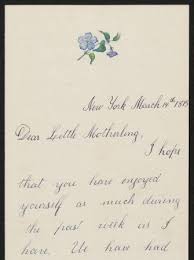 New York March 14th 18
Dear Little Motherling,
I hope
that you have enjoyed
yourself as much during
the past week as I
have. We have had